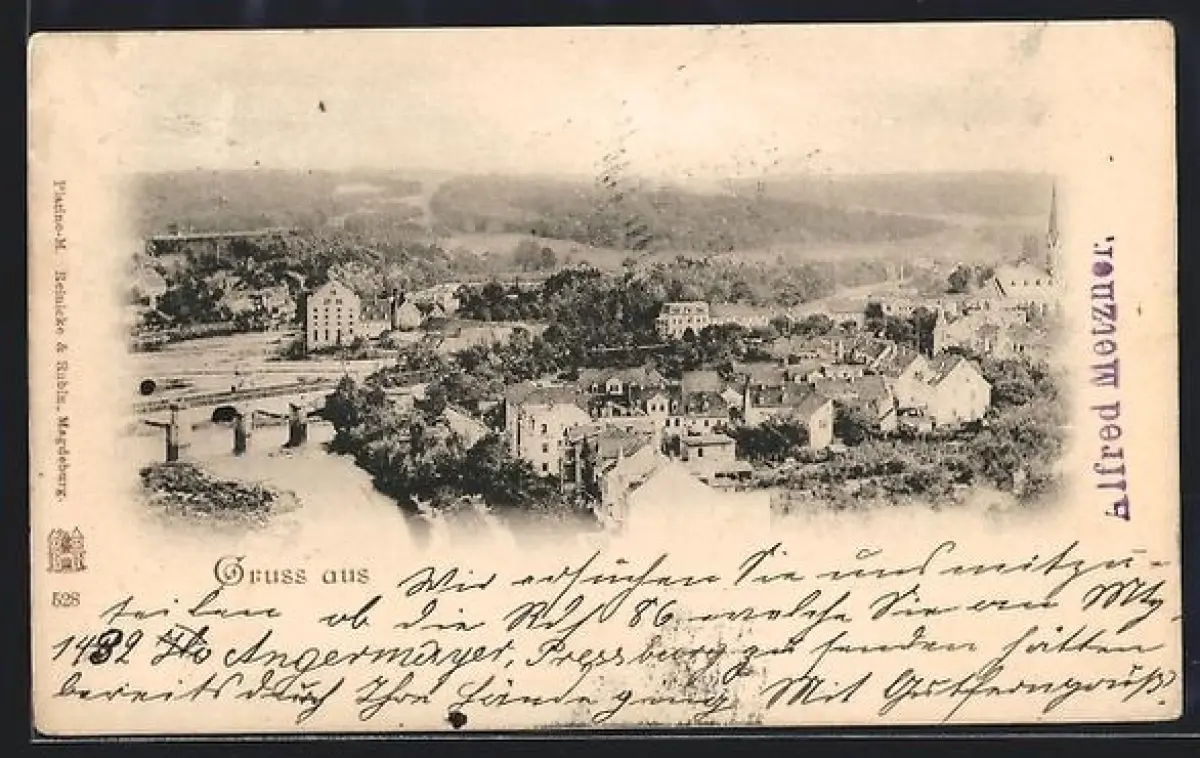 Platino-M. Reinicke & Rubin, Magdeburg.
528
Gruss aus
Alfred Metzner.
Wir ersuchen Sie uns mitzu-
teilen ob die Rdf 86 welche Sie an Mtg
1432 Angermayer, Pressburg zu senden hätten
bereits durch Ihre Hände ging Mit Gutferngruß